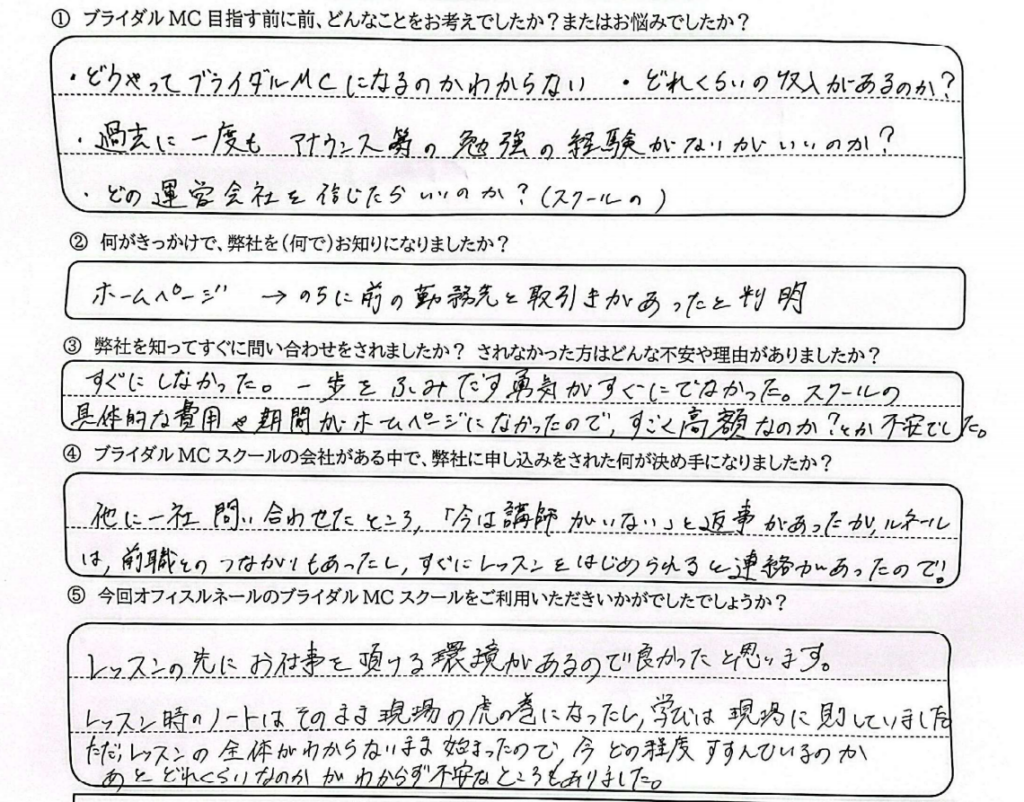 ① ブライダルMC目指す前に前、どんなことをお考えでしたか？またはお悩みでしたか？
・どうやってブライダルMCになるのかわからない ・どれくらいの収入があるのか？
・過去に一度も アナウンス等の勉強の経験がないがいいのか？
・どの運営会社を信じたらいいのか？(スクールの)
② 何がきっかけで、弊社を(何で)お知りになりましたか？
ホームページ →のちに前の勤務先と取引きがあったと判明
③ 弊社を知ってすぐに問い合わせをされましたか？ されなかった方はどんな不安や理由がありましたか？
すぐにしなかった。一歩をふみだす勇気がすぐにでなかった。スクールの
具体的な費用や期間がホームページになかったので、すごく高額なのか？とか不安でした。
④ ブライダルMCスクールの会社がある中で、弊社に申し込みをされた何が決め手になりましたか？
他に一社問い合わせたところ、「今は講師がいない」と返事があったが、ルネール
は、前職とのつながりもあったし、すぐにレッスンをはじめられると連絡があったので!
⑤ 今回オフィスルネールのブライダルMCスクールをご利用いただきいかがでしたでしょうか？
レッスンの先にお仕事を頂ける環境があるので良かったと思います。
レッスン時のノートはそのまま現場の虎の巻になったし、学びは現場に則していました
ただ、レッスンの全体がわからないまま始まったので、今どの程度すすんでいるのか
あとどれくらいなのかがわからず不安なところもありました。